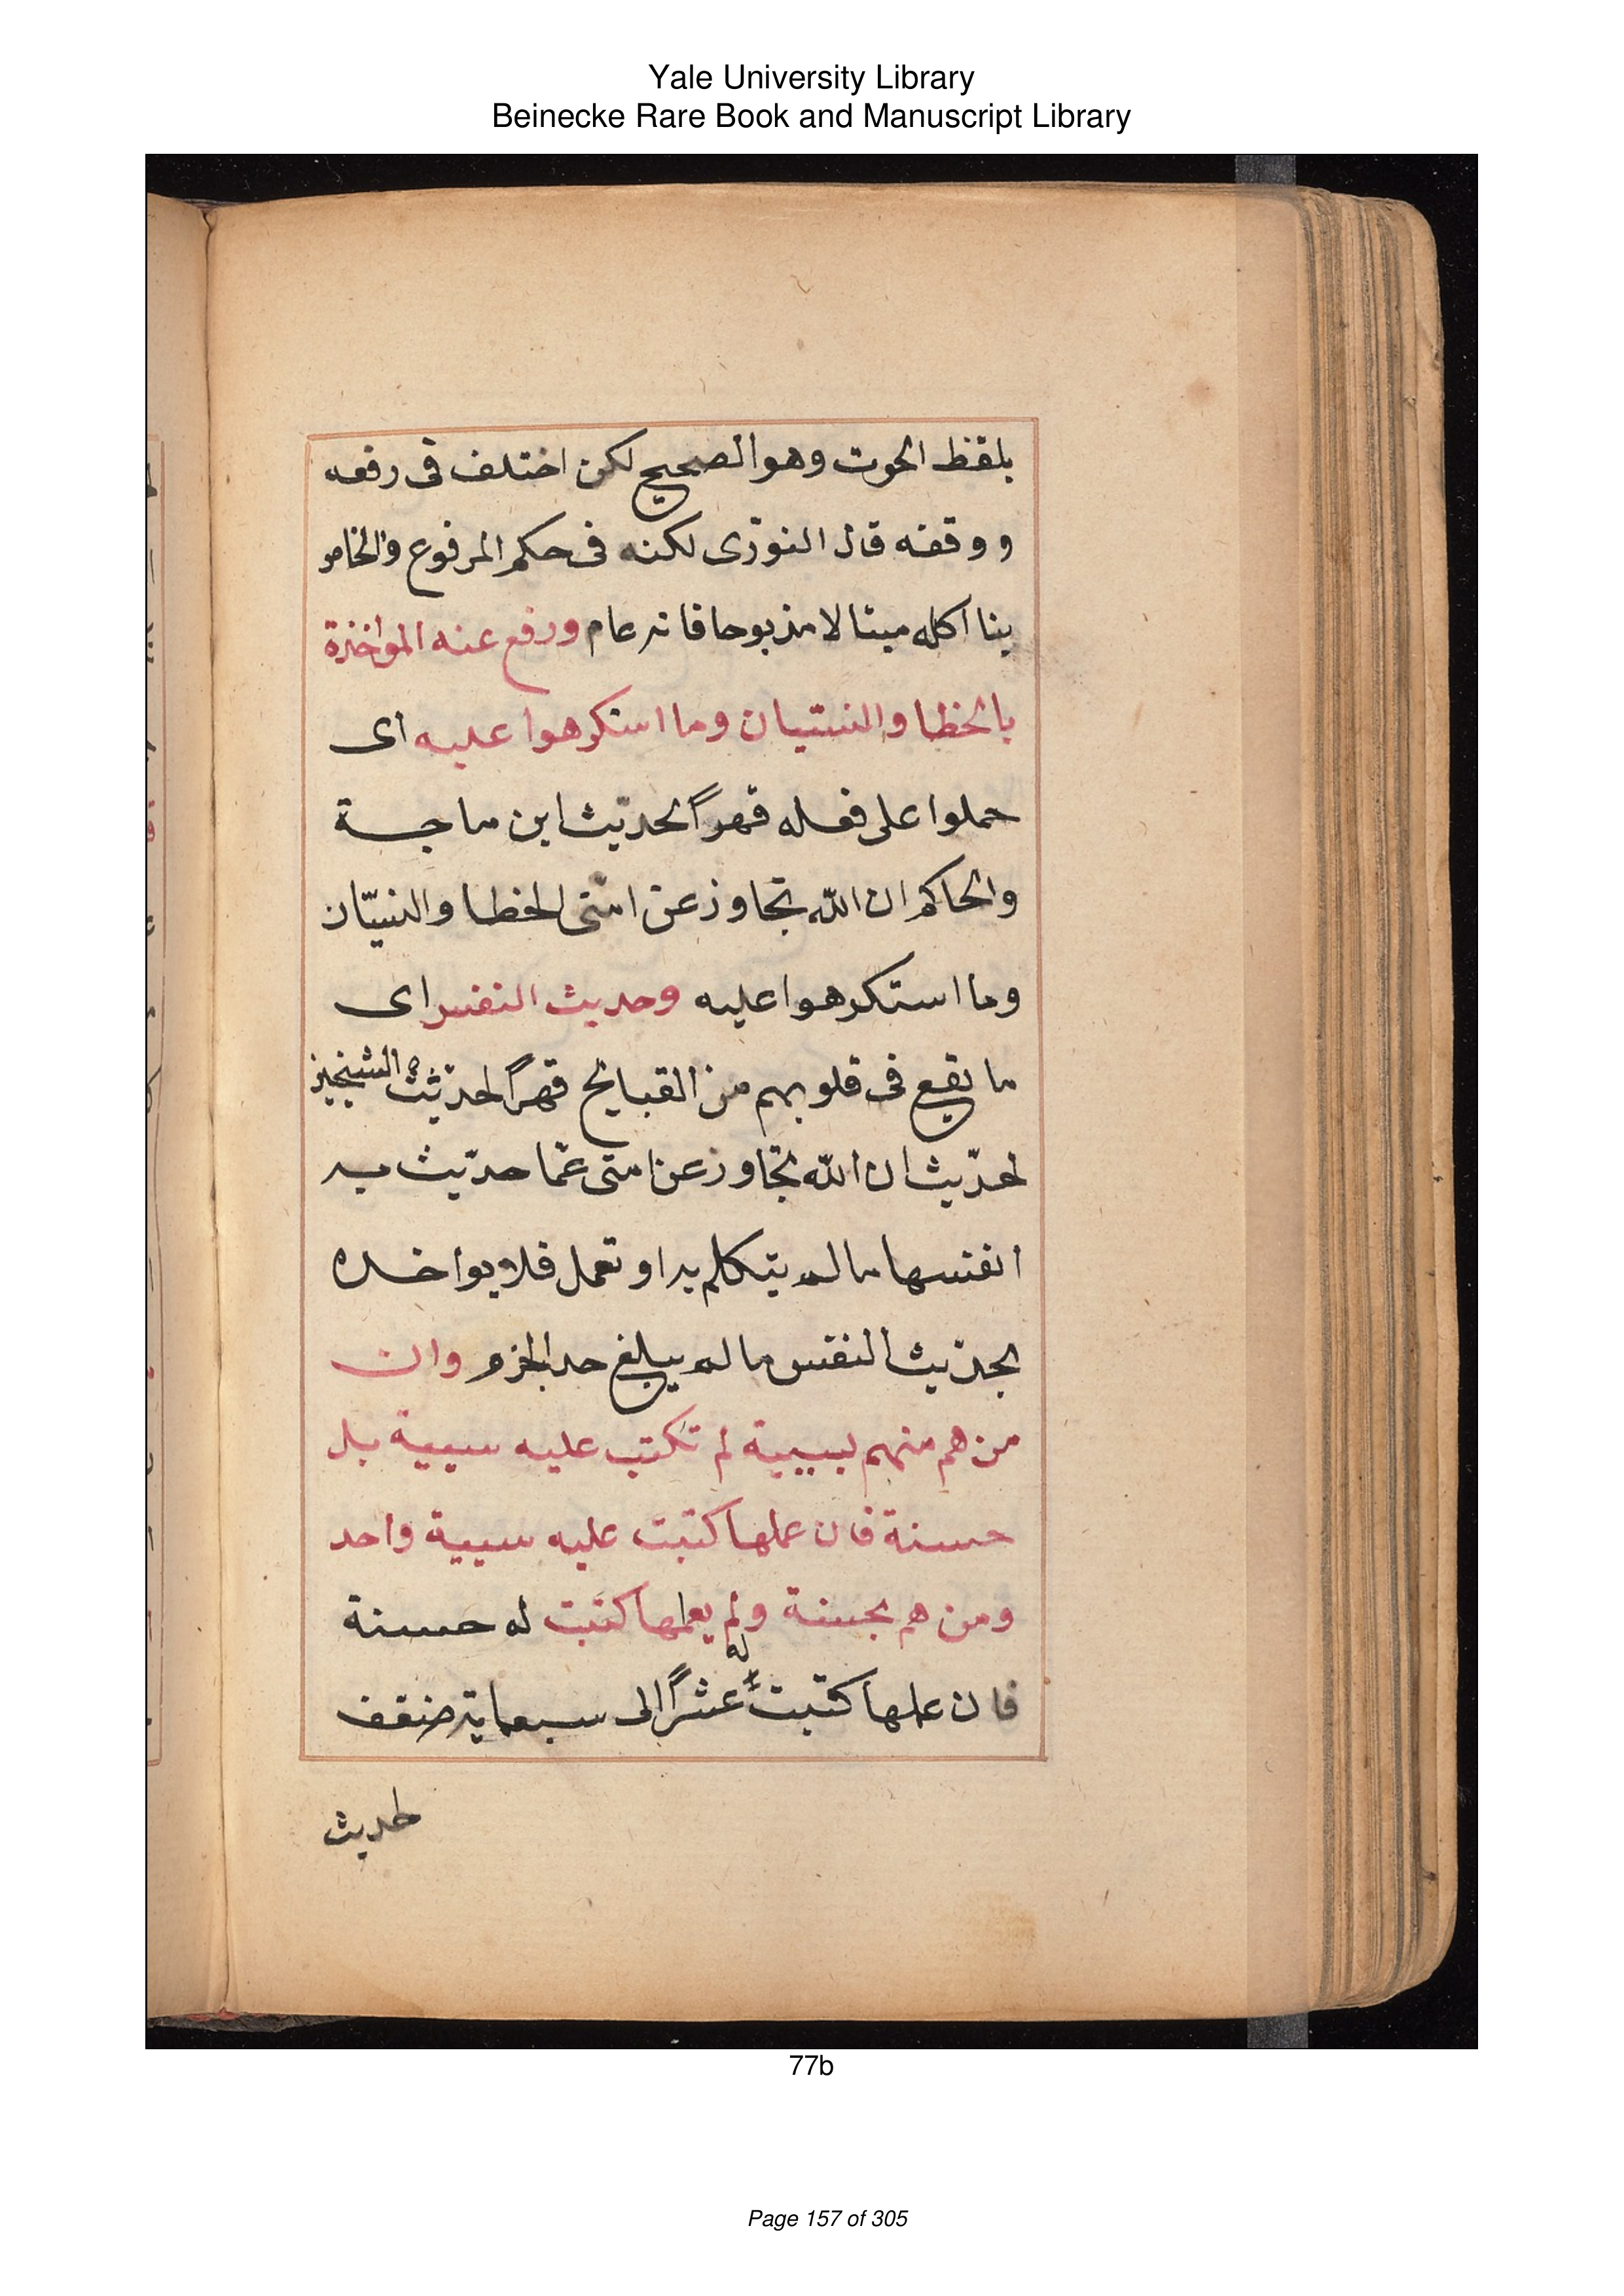 Yale University Library
Beinecke Rare Book and Manuscript Library
بلفظ الحوت وهو الصحيح لكن اختلف فى رفعه
ووقفه قال النووى لكنه فى حكم المرفوع والخاص
بنا اكله ميتا لا مذبوحا فانه عام ورفع عنه المواخذة
بالخطا والنسيان وما استكرهوا عليه اى
حملوا على فعله قهراً لحديث ابن ماجة
والحاكم ان الله تجاوز عن امتى الخطا والنسيان
وما استكرهوا عليه وحديث النفس اى
ما يقع فى قلوبهم من القبايح قهراً لحديث الشيخين
لحديث ان الله تجاوز عن امتى عما حديث به
انفسها ما لم يتكلم به او تعمل فلا يواخذه
بحديث النفس ما لم يبلغ حد الجزم وان
من هم منهم بسيية لم تكتب عليه سيية بل
حسنة فان عملها كتبت عليه سيية واحد
ومن هم بحسنة ولم يعملها كتبت له حسنة
فان عملها كتبت له عشراً الى سبعماية ضعف
لحديث
77b
Page 157 of 305